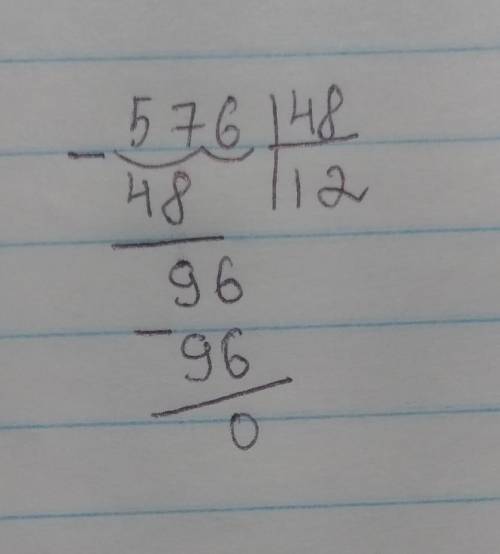 576 |48
- 48 |12
96
- 96
0